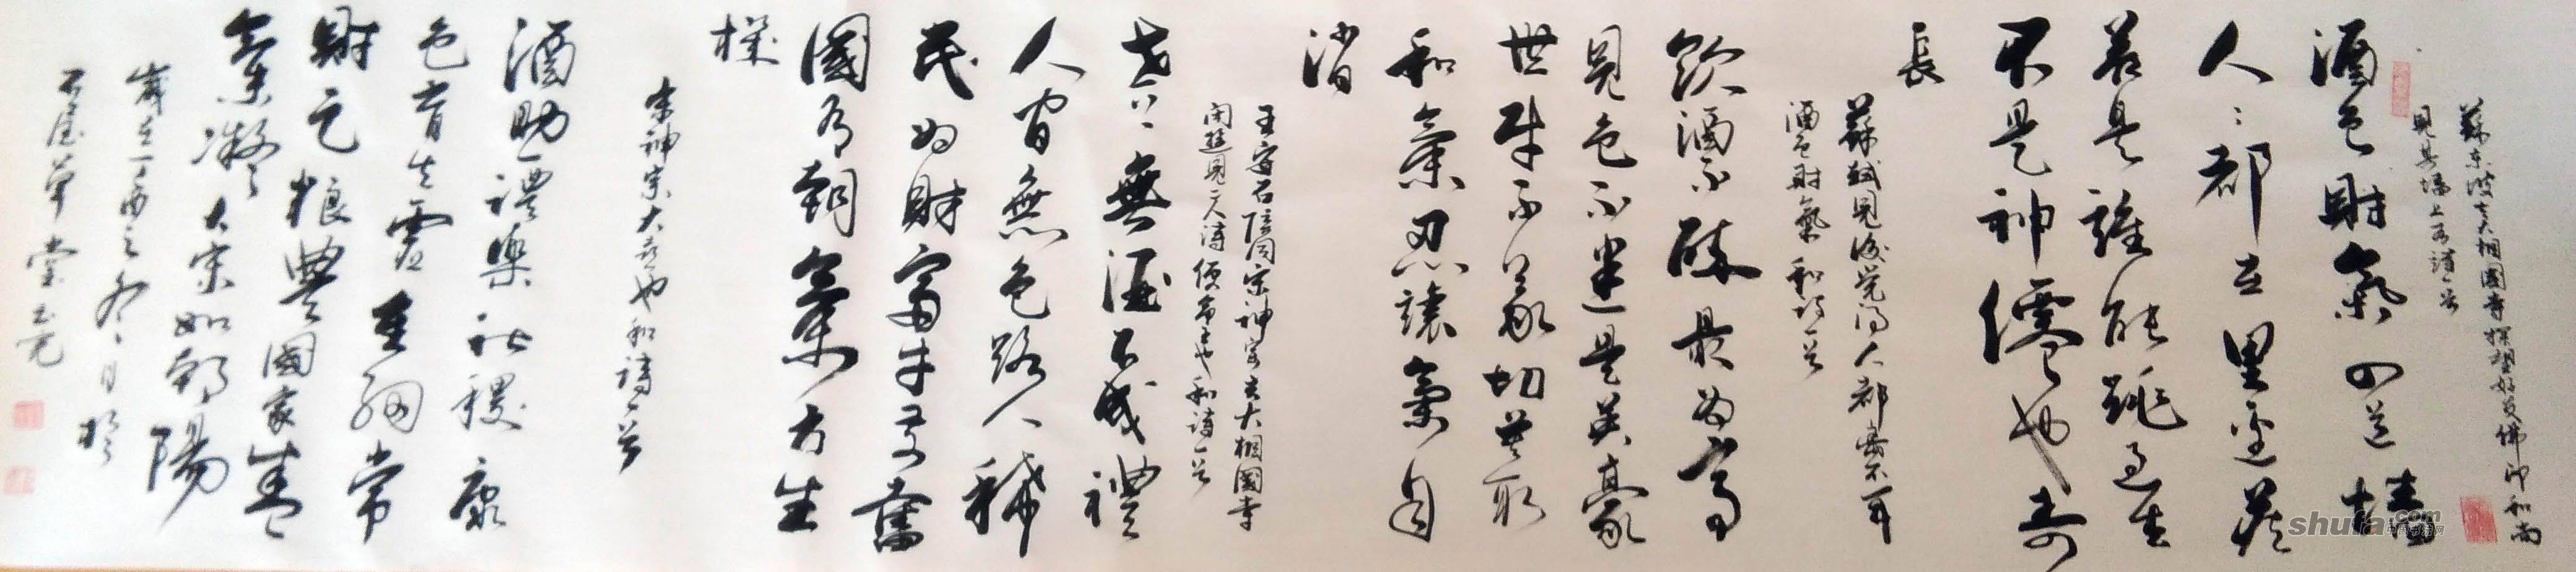 蘇東坡去大相國寺探望好友佛印和尚
見其墻上有詩一首
酒色財氣四道墻
人人都在里邊藏
若是誰能跳過去
不是神僊也壽
長
蘇軾見後覺得人都離不開
酒色財氣和詩一首
飲酒不醉最為高
見色不迷是英豪
世財不義切莫取
和氣忍讓氣自
消
王安石陪同宋神宗去大相國寺
閑遊見二人詩便 也和詩一首
世上無酒不成禮
人間無色路人稀
民為財富才發奮
國有朝氣方生
機
宋神宗大喜也和詩一首
酒助禮樂社稷康
色育生靈重綱常
財足粮豐國家盛
氣凝大宋如朝陽
歲在丁酉之冬月於
石屋草堂
shufa.com